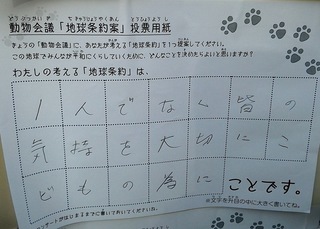 どうぶつかいぎ ちきゅうじょうやくあん とうひょうようし
動物会議「地球条約案」投票用紙
きょうの「動物会議」に、あなたが考える「地球条約」を1つ提案してください。
この地球でみんなが平和にくらしていくために、どんなことを決めたらよいと思いますか?
わたしの考える「地球条約」は、
1人でなく皆の
気持を大切にこ
どもの為に ことです。
※文字を升目の中に大きく書いてね。